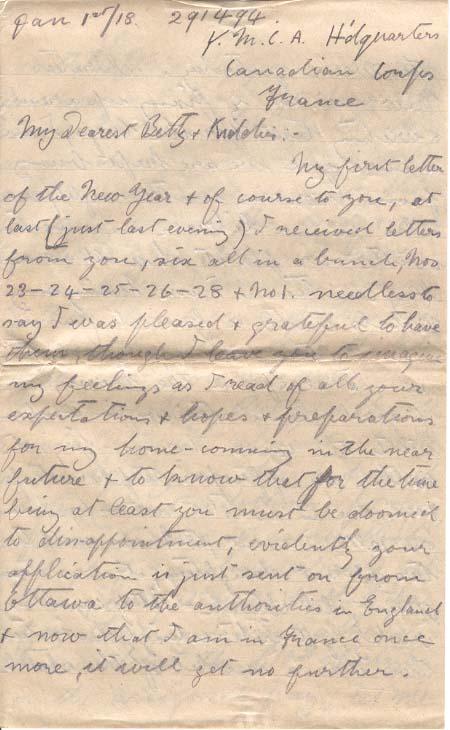 Jan 1st/18. 291494.
Y.M.C.A. H'dquarters
Canadian Corps
France
My Dearest Betty & Kiddies:-
My first letter
of the New Year & of course to you, at
last (just last evening) I received letters
from you, six all in a bunch, Nos
23-24-25-26-28 & No1. needless to
say I was pleased & grateful to have
them, though I leave you to imagine
my feelings as I read of all your
expectations & hopes & preparations
for my home-comming in the near
future & to know that for the time
being at least you must be doomed
to dissappointment, evidently your
application is just sent on from
Ottawa to the authorities in England
& now that I am in France once
more, it will get no further.